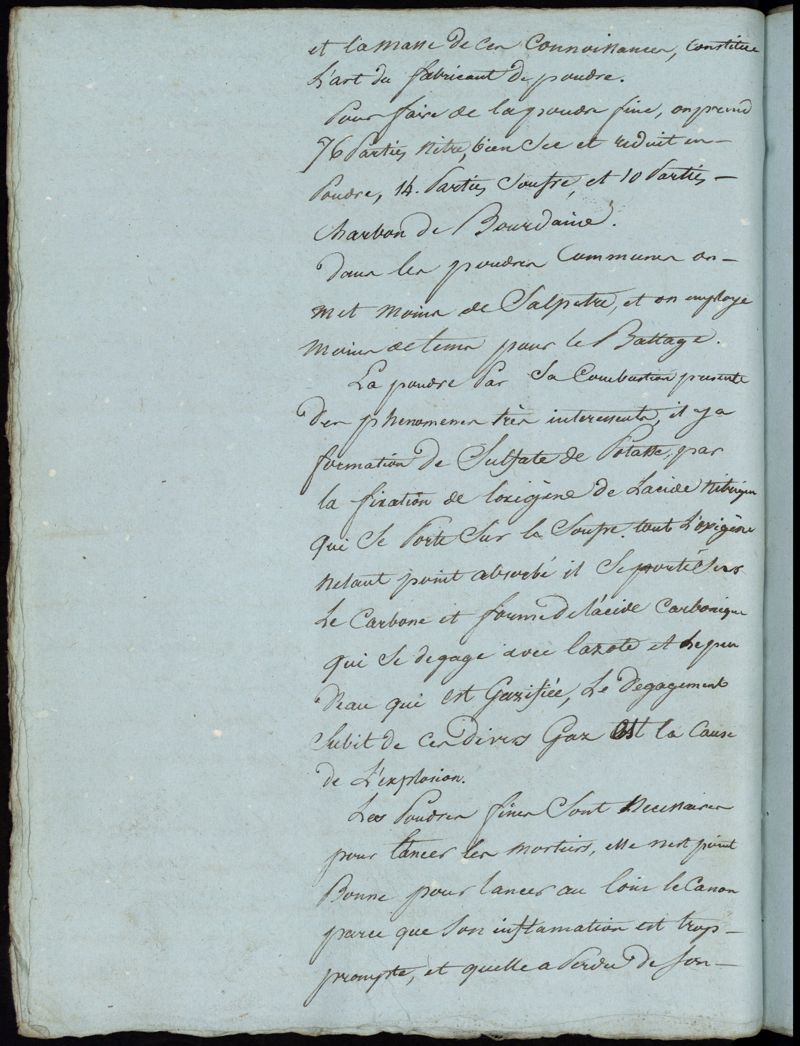 et la masse de ces connoissances, constitue
L'art du fabricant de poudre.
Pour faire de la poudre fine, on prend
76 Parties nitre, bien sec et reduit en-
Poudre, 14. Parties Soufre, et 10 Parties-
Charbon de Bourdaine.
Dans les poudres Communes on-
met moins de Salpetre, et on employe
moins de tems pour le Battage.
La poudre Par Sa Combustion presente
des phenomenes très interessents, il y a
formation de Sulfate de Potasse, par
la fixation de loxigène de Lacide Nitrique
qui Se Porte Sur le Soufre. tout L'oxigène
netant point absorbé il Se porte Sur
Le Carbone et forme de l'acide Carbonique
qui Se degage avec lazote et le peu
Deau qui est Gazifiée, Le Degagement
Subit de ces Divers Gaz est la Cause
de L'explosion.
Les Poudres fines Sont Necessaires
pour lancer les mortiers, elle nest point
Bonne pour lancer au loin le Canon
parce que Son inflamation est trop-
prompte, et quelle a Perdu de Son-